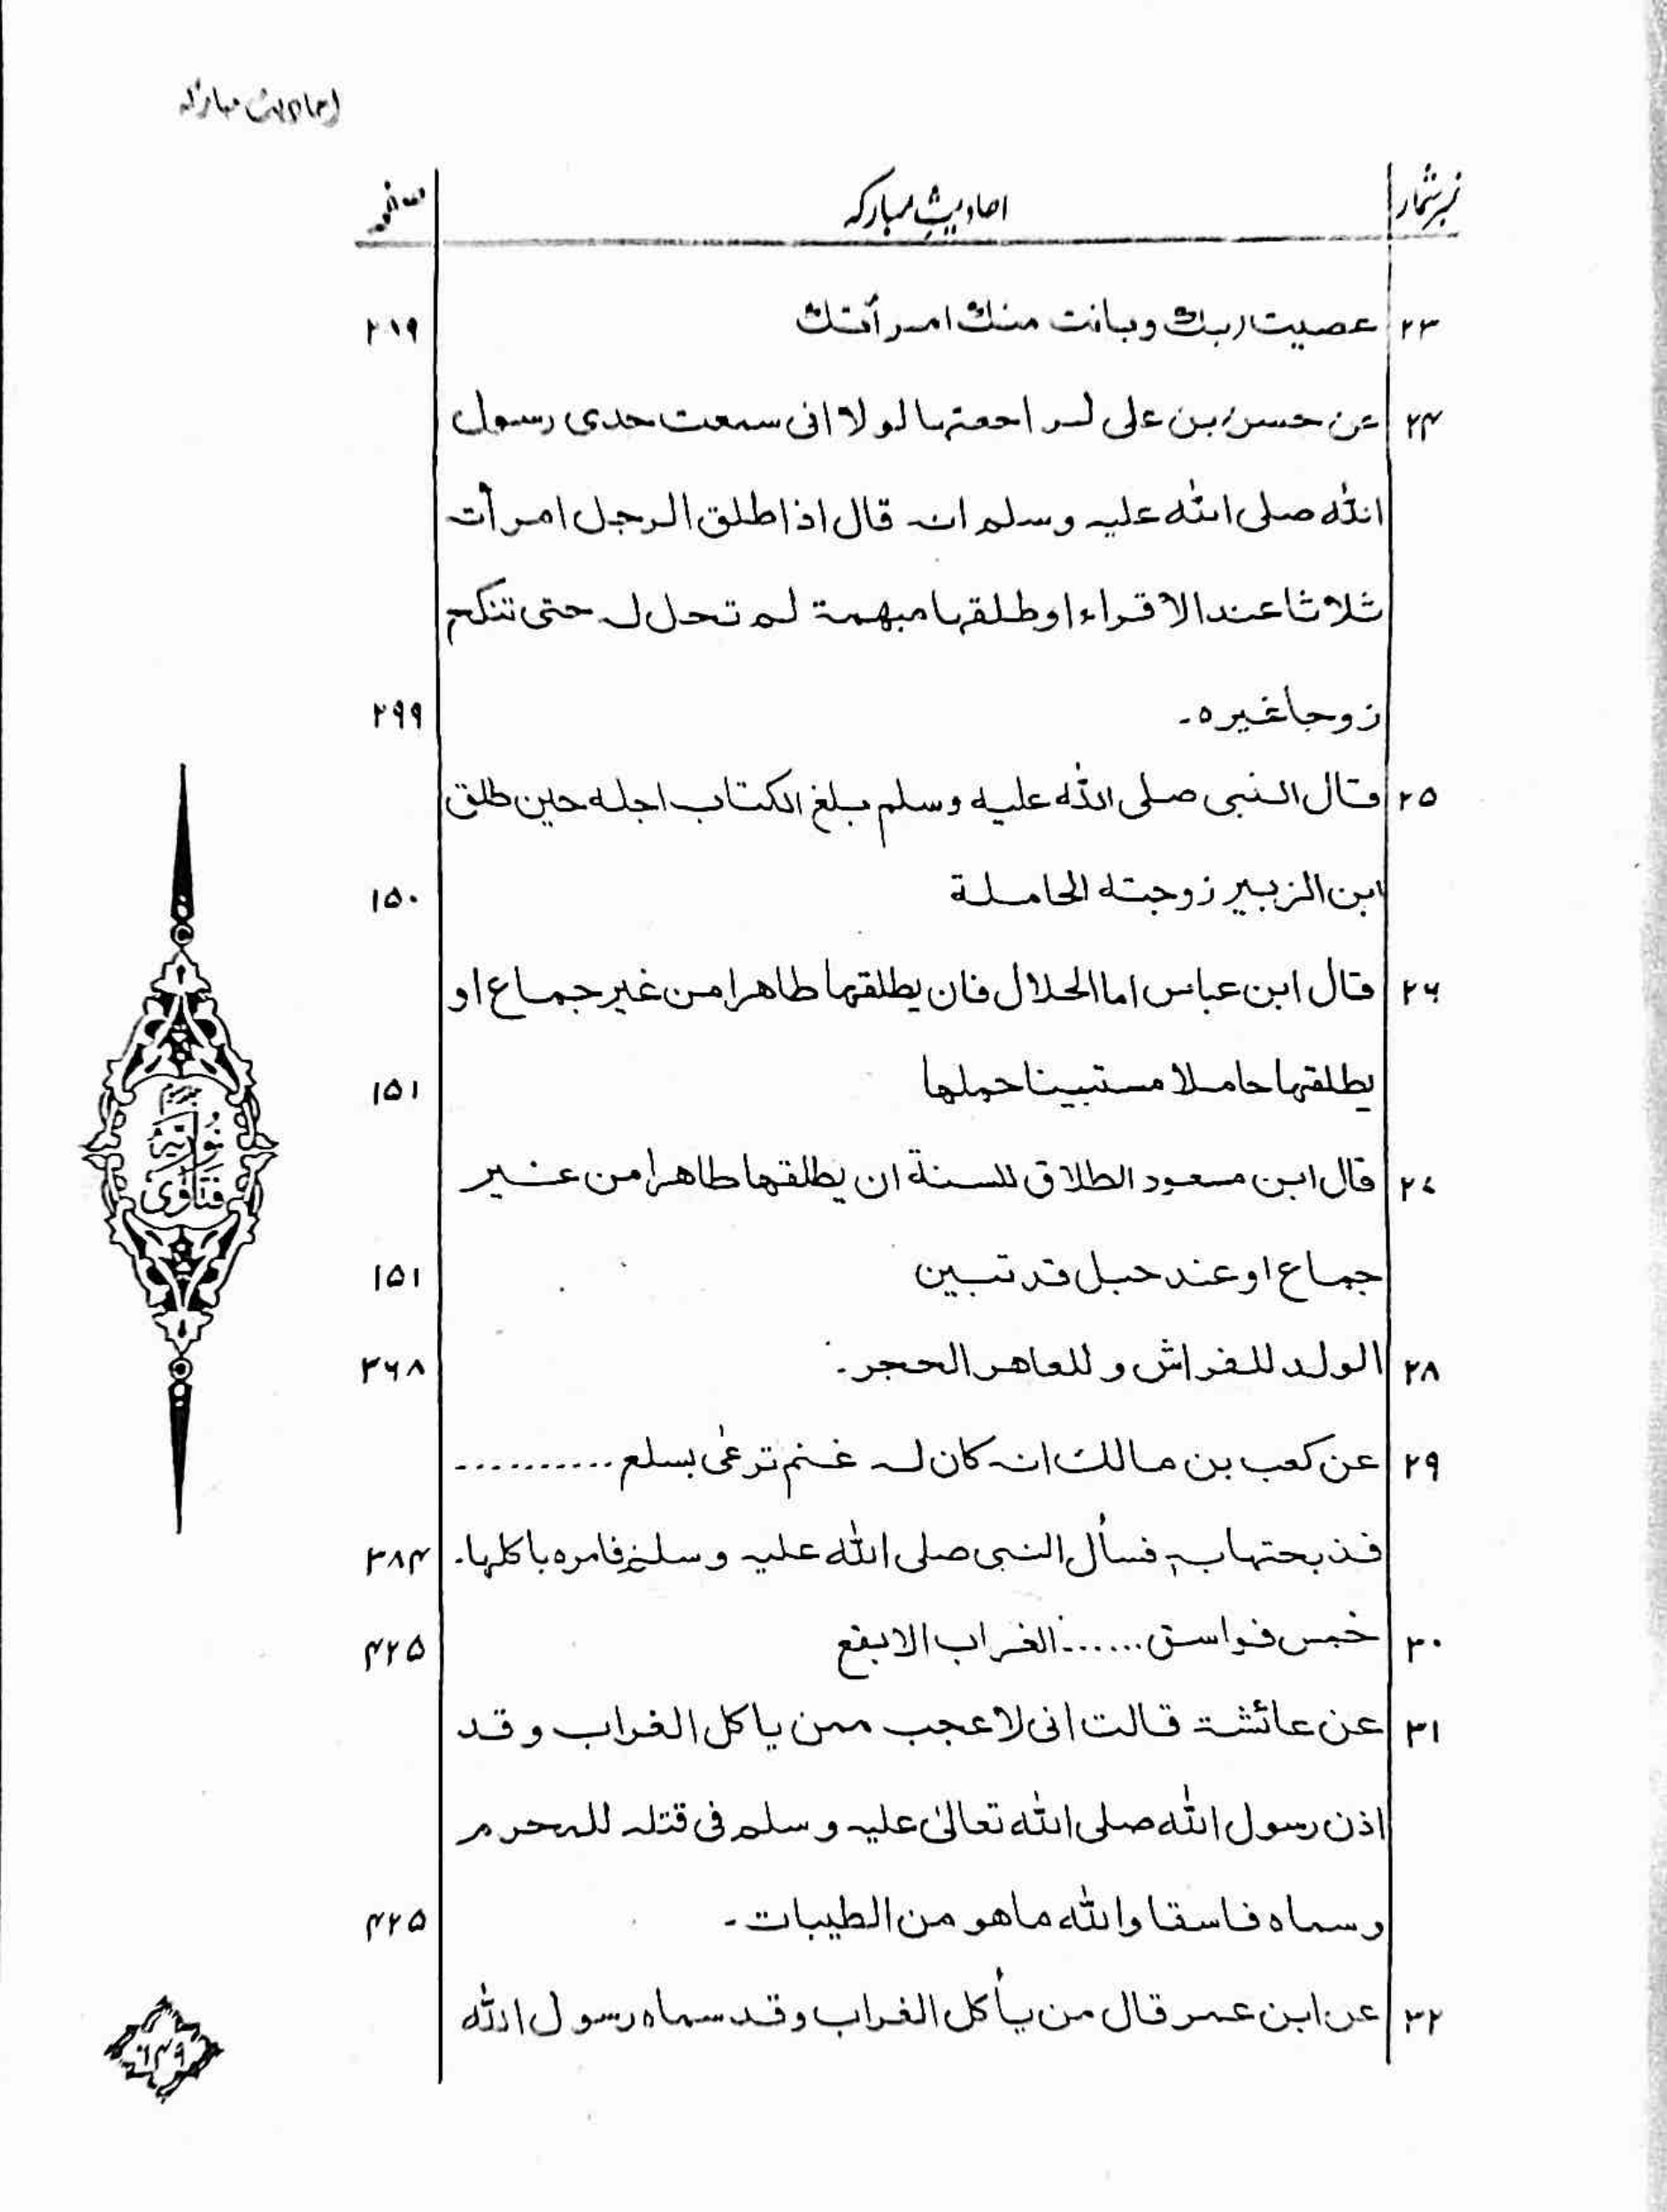 احادیث مبارکہ
نمبر شمار احادیثِ مبارکہ صفحہ
۲۳ عصیت ربك وبانت منك امرأتك ۲۱۹
۲۴ عن حسن بن علی لراجعتہا لولا انی سمعت جدی رسول
اللہ صلی اللہ علیہ وسلم انہ قال اذا طلق الرجل امرأتہ
ثلاثا عند الاقراء او طلقہا مبہمۃ لم تحل لہ حتی تنکح
زوجا غیرہ۔ ۲۹۹
۲۵ قال النبی صلی اللہ علیہ وسلم بلغ الکتاب اجلہ حین طلق
ابن الزبیر زوجتہ الحاملة ۱۵۰
۲۶ قال ابن عباس اما الحلال فان یطلقہا طاھرا من غیر جماع او
یطلقہا حاملا مستبینا حملہا ۱۵۱
۲۷ قال ابن مسعود الطلاق للسنة ان یطلقہا طاھرا من غیر
جماع او عند حبل قد تبین ۱۵۱
۲۸ الولد للفراش و للعاھر الحجر۔ ۳۶۸
۲۹ عن کعب بن مالك انہ کان لہ غنم ترعٰی بسلع ...........
فذبحتہا بہٖ فسأل النبی صلی اللہ علیہ وسلم فامرہ باکلہا۔ ۳۸۴
۳۰ خمس فواسق ...... الغراب الابقع ۴۲۵
۳۱ عن عائشۃ قالت انی لاعجب ممن یاکل الغراب وقد
اذن رسول اللہ صلی اللہ تعالیٰ علیہ وسلم فی قتلہ للمحرم
وسماہ فاسقا واللہ ماھو من الطیبات۔ ۴۲۵
۳۲ عن ابن عمر قال من یأکل الغراب وقد سماہ رسول اللہ
نُورِیَّہ
فَتَاوٰی
۶۴۹